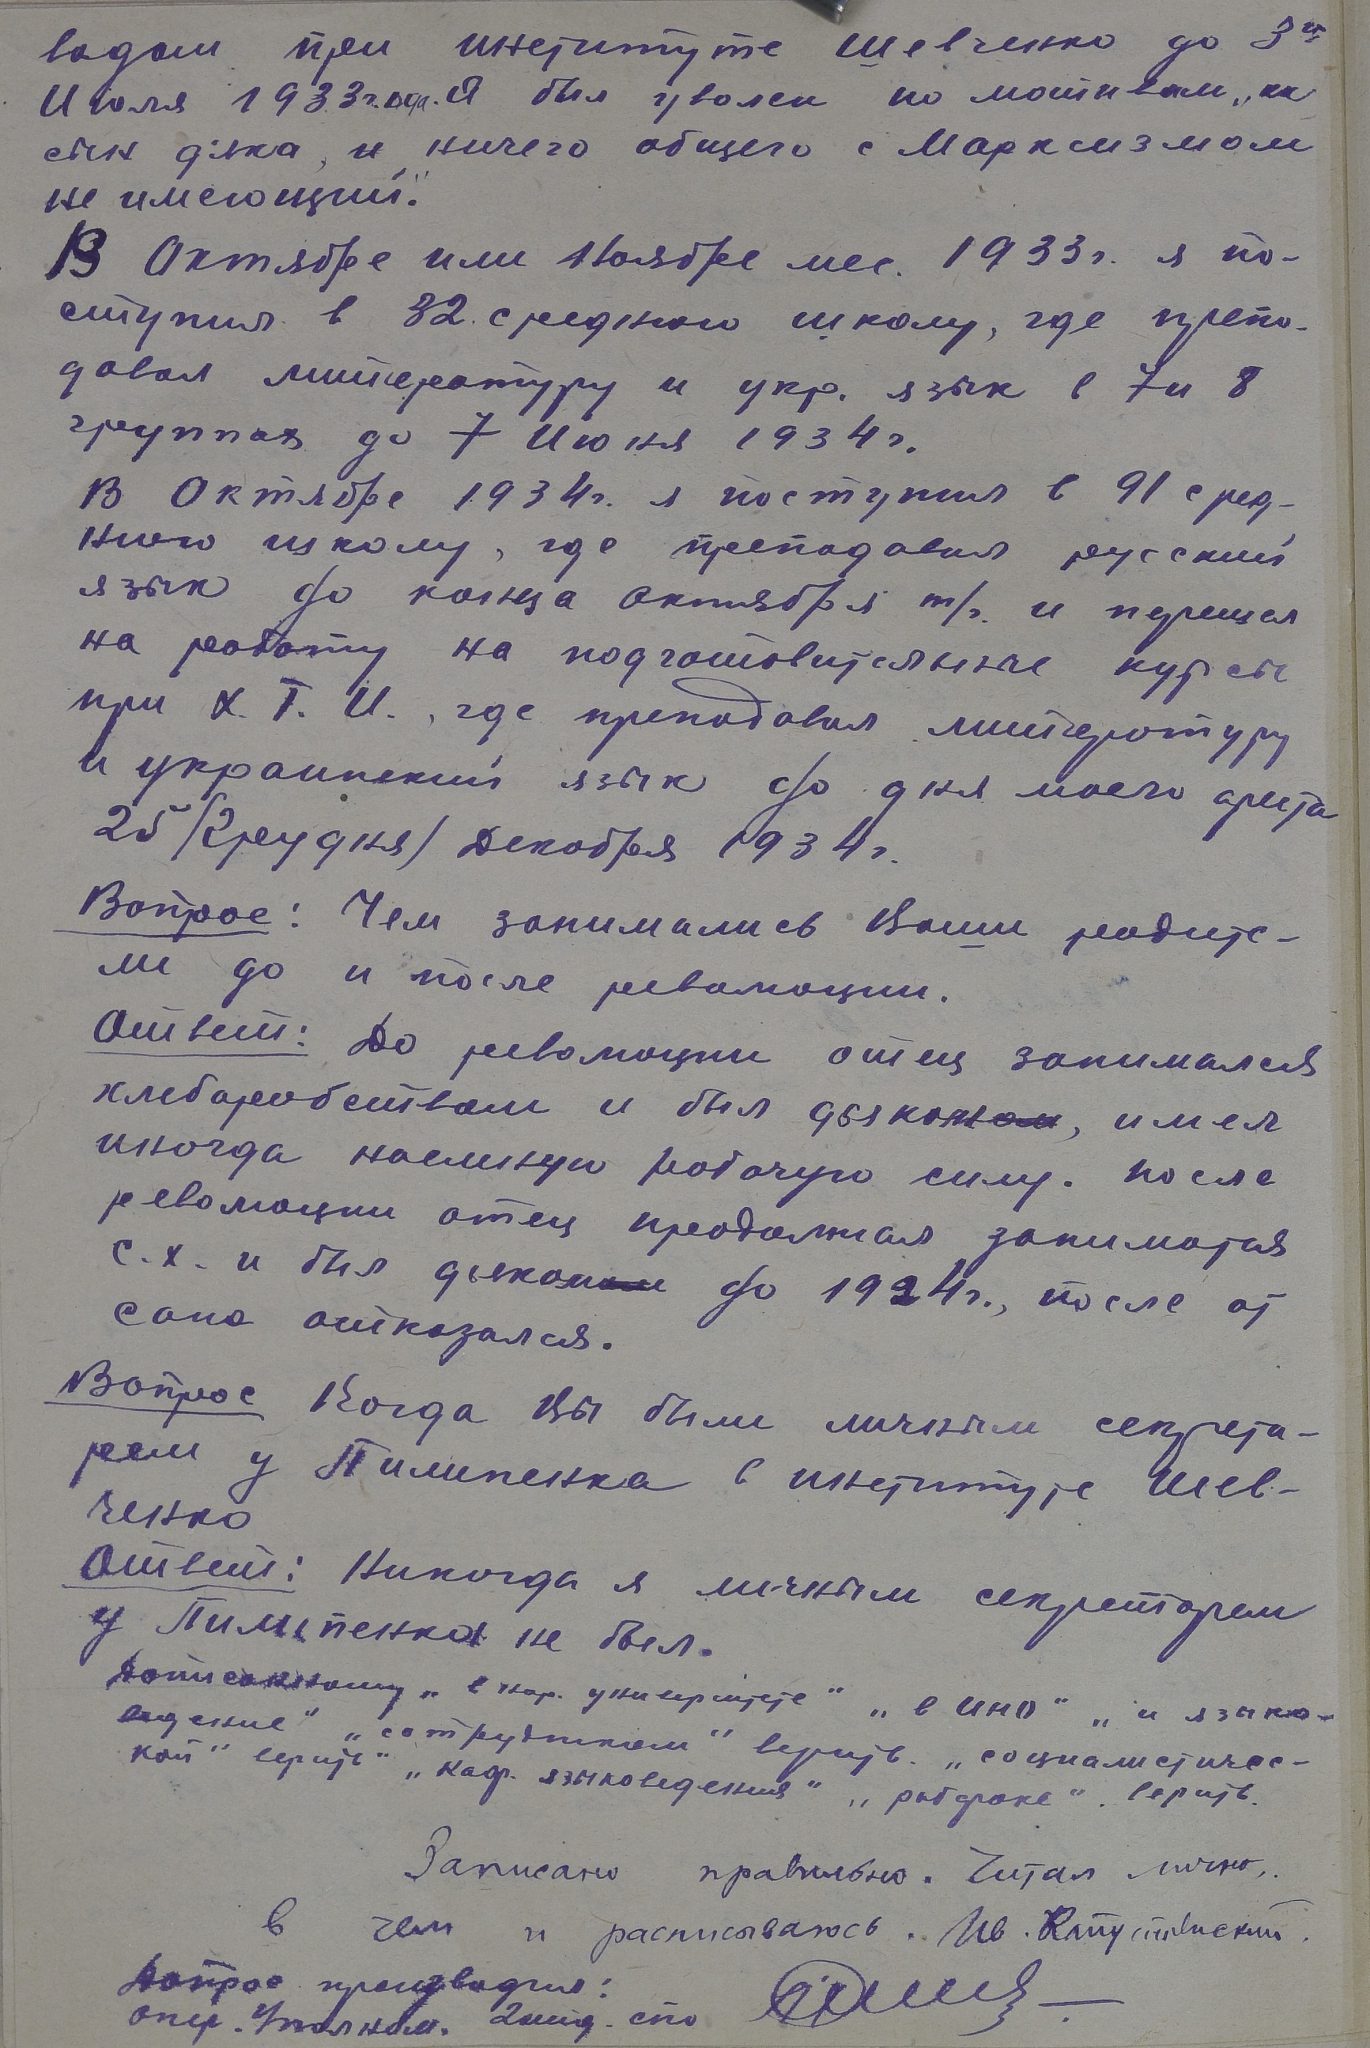 водом при институте Шевченко до 3го
Июля 1933 года. Я был уволен по мотивам „как
сын дяка, и ничего общего с Марксизмом
не имеющий".
В Октябре или Ноябре мес. 1933г. я по-
ступил в 32 среднюю школу, где препо-
давал литературу и укр. язык в 7 и 8
группах до 7 Июня 1934г.
В Октябре 1934г. я поступил в 91 сред-
нюю школу, где преподавал русский
язык до конца октября т/г. и перешел
на работу на подготовительные курсы
при Х.Т.И., где преподавал литературу
и украинский язык до дня моего ареста
25 /Грудня/ Декабря 1934г.
Вопрос: Чем занимались Ваши родите-
ли до и после революции.
Ответ: До революции отец занимался
хлеборобством и был дьяконом, имел
иногда наемную рабочую силу. После
революции отец продолжал заниматся
с.х. и был дьяконом до 1924г., после от
сана отказался.
Вопрос Когда Вы были личным секрета-
рем у Пилипенка в институте Шев-
ченко
Ответ: Никогда я личным секретарем
у Пилипенка не был.
Дописанному „в хар. университете" „в ИНО" „и языко-
ведение" „сотрудником" верить. „социалистичес-
кой" верить" „каф. языковедения" „рабфаке". верить.
Записано правильно. Читал лично,
в чем и расписываюсь. Ив. Капустянский.
Допрос производил:
Опер. Уполном. 2 отд. спо